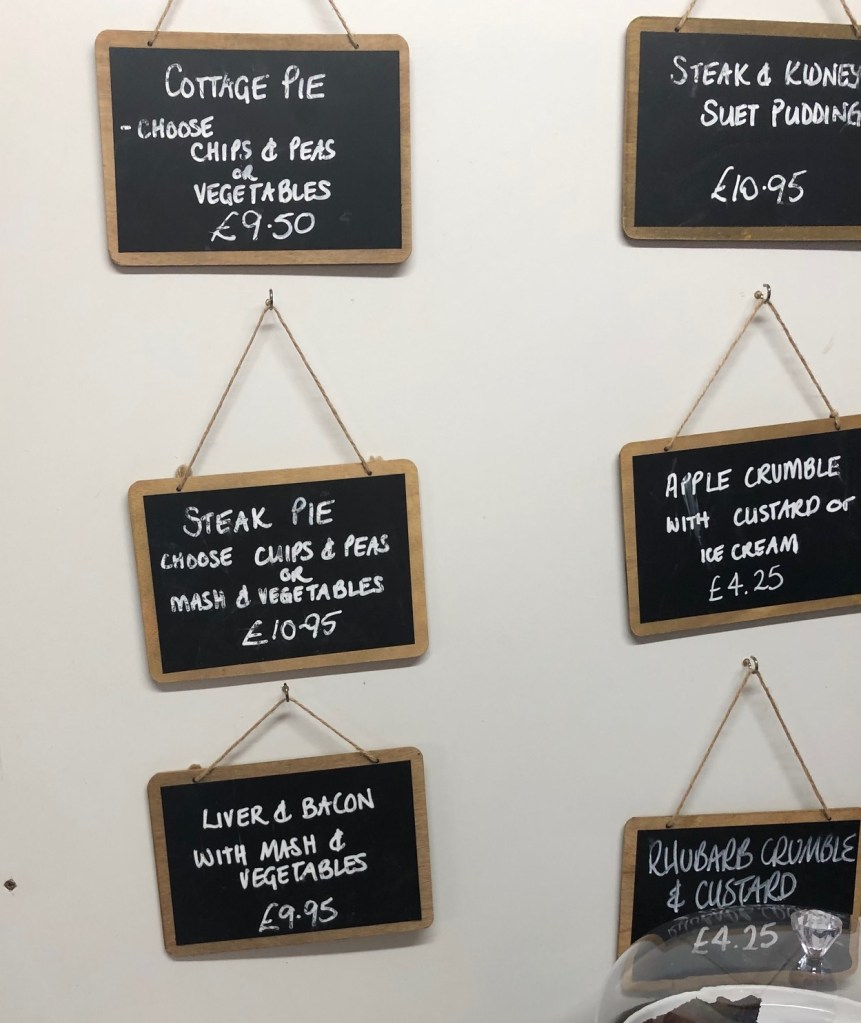 COTTAGE PIE
- CHOOSE
CHIPS & PEAS
OR
VEGETABLES
£9.50
STEAK & KIDNEY
SUET PUDDING
£10.95
STEAK PIE
CHOOSE CHIPS & PEAS
OR
MASH & VEGETABLES
£10.95
APPLE CRUMBLE
WITH CUSTARD or
ICE CREAM
£4.25
LIVER & BACON
WITH MASH &
VEGETABLES
£9.95
RHUBARB CRUMBLE
& CUSTARD
£4.25